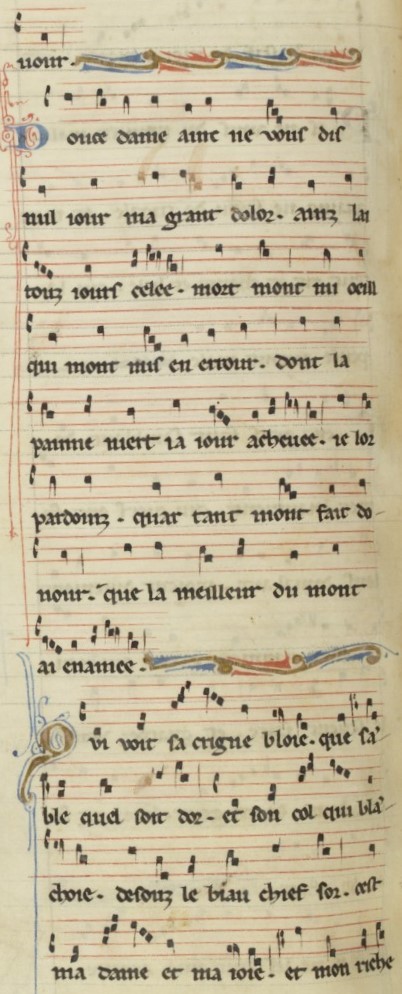 uour.
Douce dame ainc ne vous dis
nul iour ma grant dolor. ainz lai
touz iours celee. mort mont mi oeill
qui mont mis en errour. dont la
painne niert ia iour acheuee. ie lor
pardoinz. quar tant mont fait do
nour. que la meilleur du mont
ai enamee.
Qui voit sa crigne bloie. que sa
ble quel soit dor. et son col qui bla
choie. desouz le biau chief sor. cest
ma dame et ma ioie. et mon riche